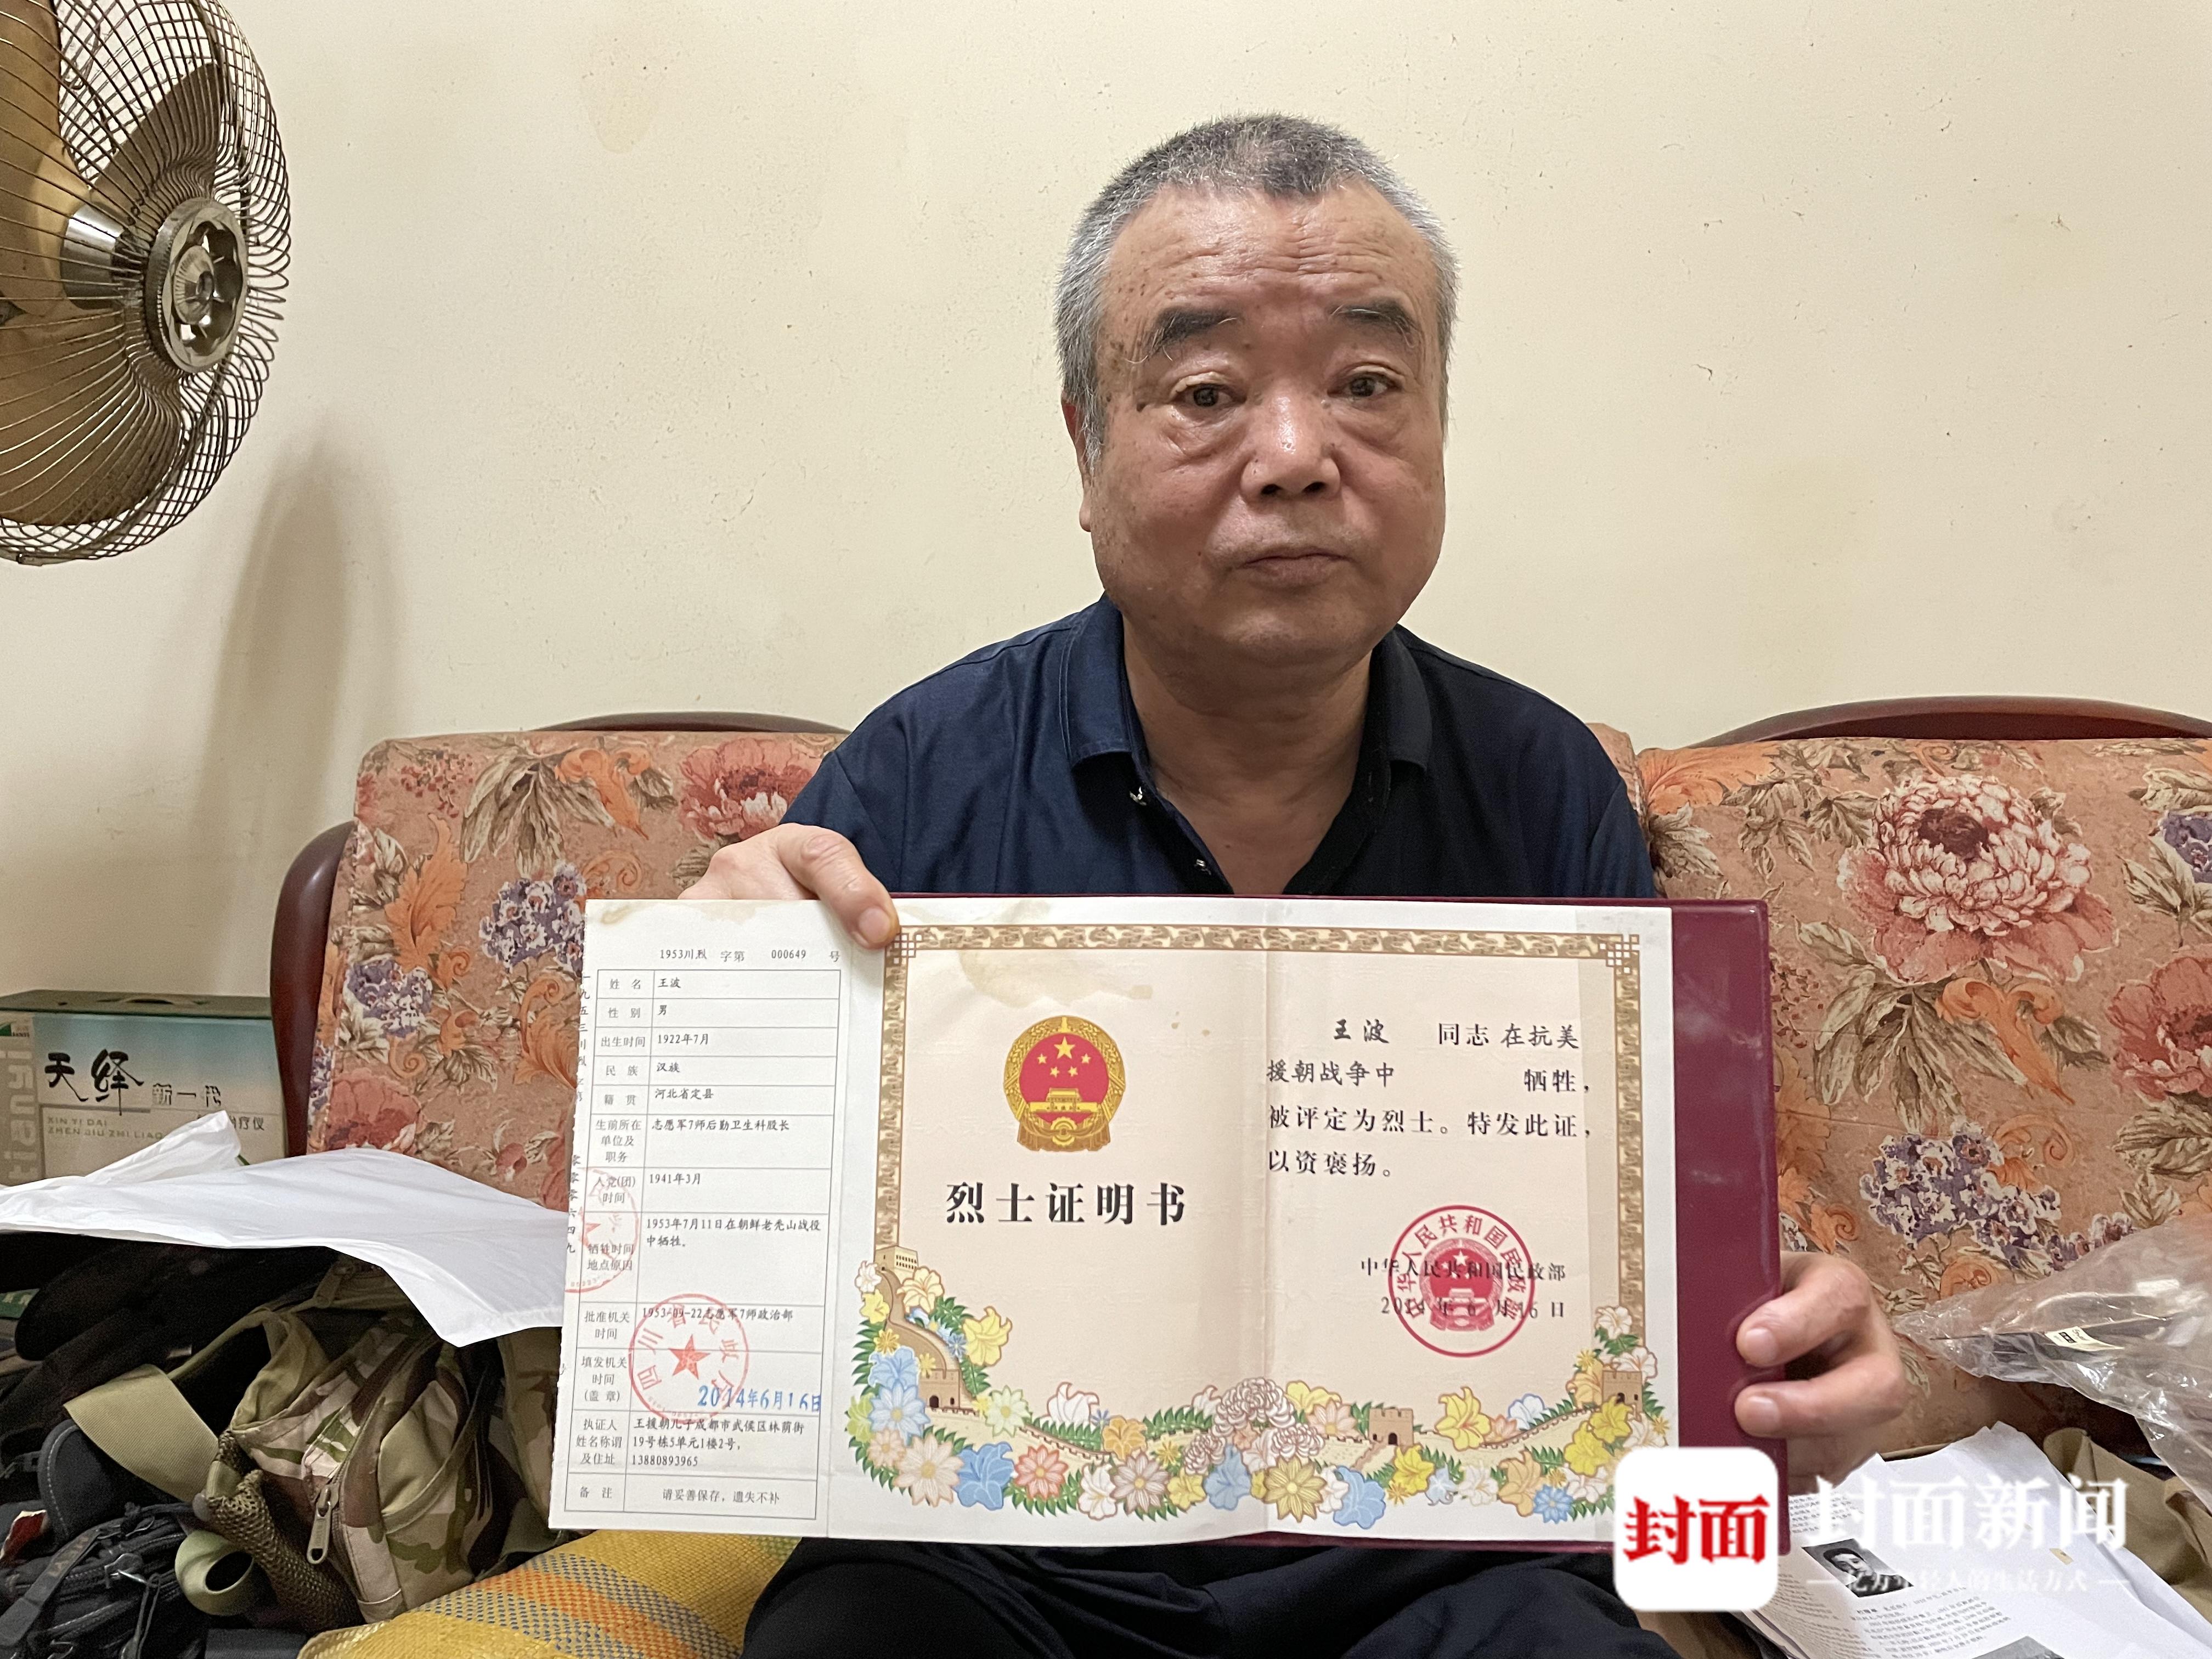 1953川烈 字第 000649 号
姓 名 王波
性 别 男
出生时间 1922年7月
民 族 汉族
籍 贯 河北省定县
生前所在单位及职务 志愿军7师后勤卫生科股长
入党(团)时间 1941年3月
牺牲时间地点原因 1953年7月11日在朝鲜老秃山战役
中牺牲。
批准机关时间 1953-09-22志愿军7师政治部
填发机关时间(盖 章) 2014年6月16日
执证人姓名称谓及住址 王援朝儿子成都市武侯区林荫街
19号栋5单元1楼2号，
13880893965
备 注 请妥善保存，遗失不补
烈士证明书
王波 同志 在抗美
援朝战争中 牺牲，
被评定为烈士。特发此证，
以资褒扬。
中华人民共和国民政部
2014年6月16日
天绎 新一代
XIN YI DAI
ZHEN JIU ZHI LIAO
疗仪
封面
封面新闻
亿万年轻人的生活方式